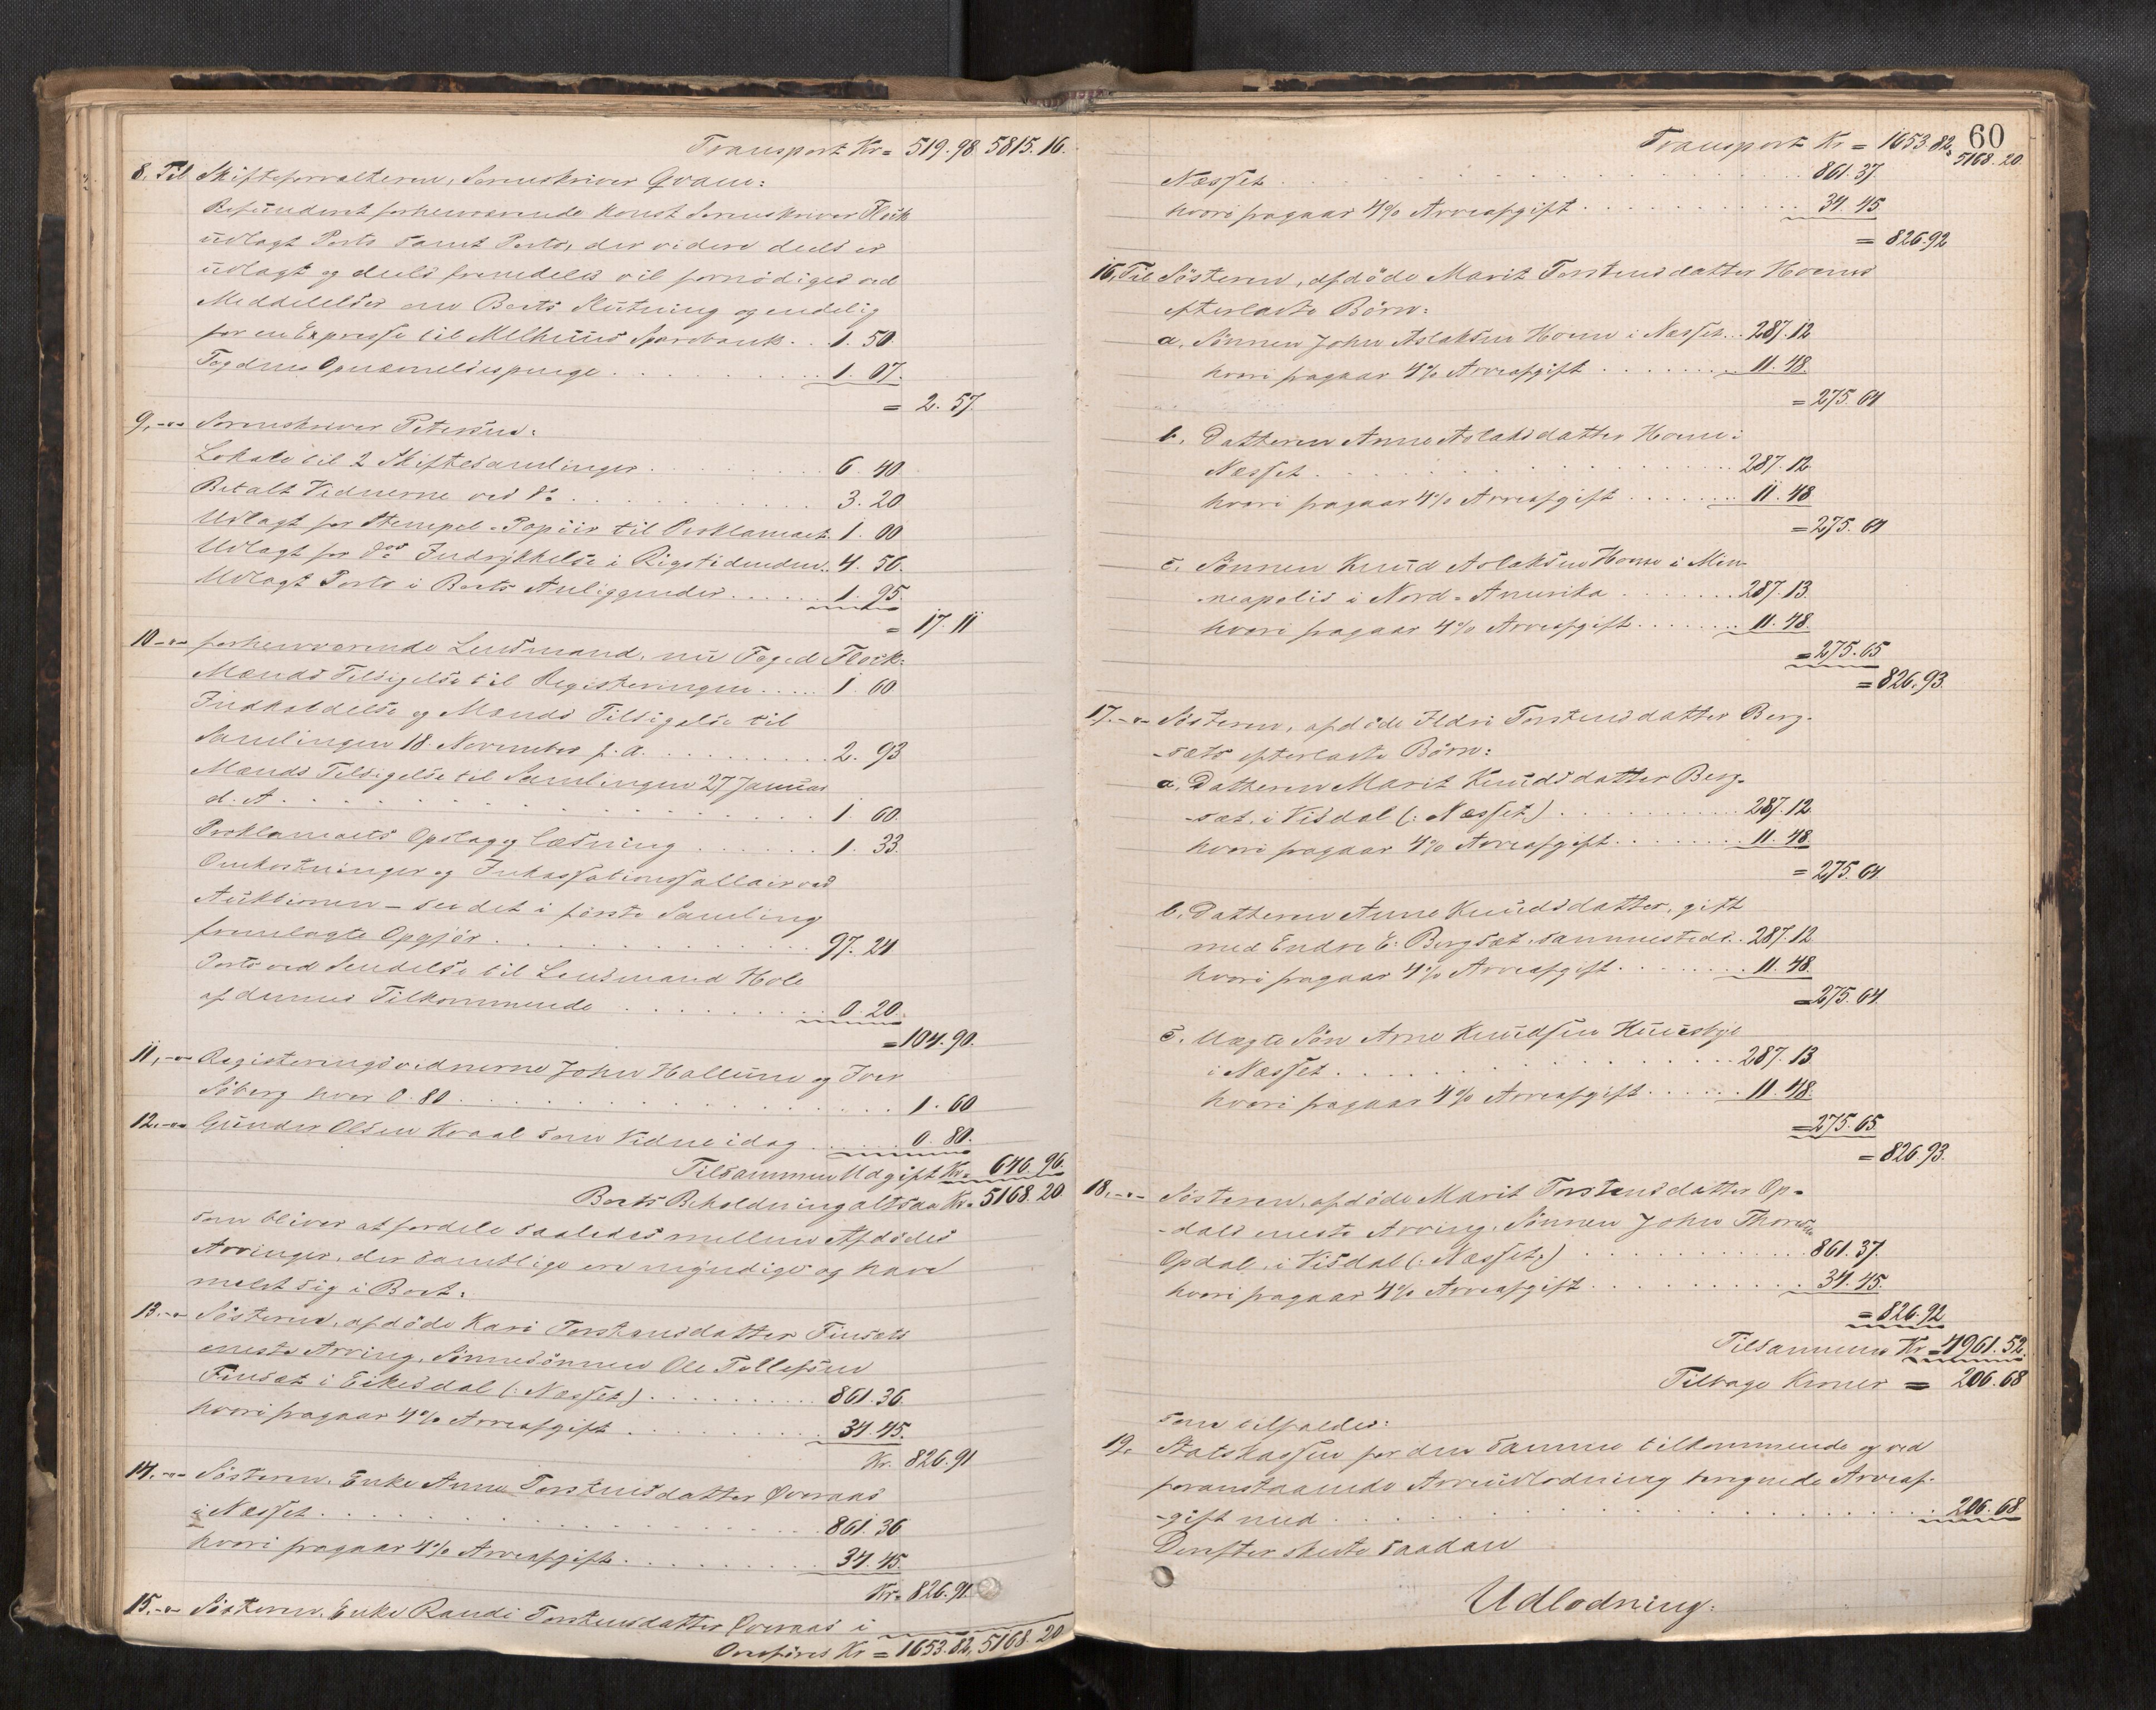 Transport Kr = 519.98 5815.16.
8. Til Skifteforvalteren, Sorenskriver Qvam:
Refunderet forhenværende Konst. Sorenskriver Fleck
udlagt Porto samt Porto, der videre deels er
udlagt og deels fremdeles vil fornödiges ved
Meddelelser om Boets Slutning og endelig
for en Expresse til Melhuus Sparebank . . 1. 50
Fogdens Opnævnelsespenge . . . 1. 07.
= 2. 57.
9. -"- Sorenskriver Petersen:
Lokale til 2 Skiftesamlinger . . . 6. 40.
Betalt Vidnerne ved do . . . 3. 20
Udlagt for Stempel-Papiir til Proklamaet 1. 00
Udlagt for dos Indrykkelse i Rigstidenden . . 4. 56.
Udlagt Porto i Boets Anliggender . . . 1. 95
= 17. 11
10 -"- forhenværende Lensmand, nu Foged Fleck:
Mænds Tilsigelse til Registeringen . . . 1. 60
Indkaldelse og Mænds Tilsigelse til
Samlingen 18. November f. A. . . . 2. 93
Mænds Tilsigelse til Samlingen 27 Januar
d. A . . . 1. 60.
Proklamaets Opslag og læsning . . . 1. 33.
Omkostninger og Inkassationssallair ved
Auktionen - se det i förste Samling
fremlagte Opgjör . . . 97. 24
Porto ved Sendelse til Lensmand Hole
af dennes Tilkommende . . . 0. 20.
= 104. 90.
11, -"- Registeringsvidnerne John Hallum og Iver
Söberg hver 0.80 . . . 1. 60
12. -"- Gunder Olsen Kraal som Vidne idag . . . 0. 80.
Tilsammen Udgift Kr. 646. 96.
Boets Beholdning altsaa Kr. 5168. 20.
som bliver at fordele saaledes mellem Afdödes
Arvinger, der samtlige ere myndige og have
meldt sig i Boet:
13. -"- Sösteren, afdöde Kari Torstensdatter Finsæts
eneste Arving, Sönnesönnen Ole Tollefsen
Finsæt i Eikesdal (: Næsset) . . . 861. 36.
hvori fragaar 4% Arveafgift . . . 34. 45.
Kr. 826. 91
14. -"- Sösteren, Enke Anne Torstensdatter Överaas
i Næsset . . . 861. 36
hvori fragaar 4% Arveafgift . . . 34. 45.
Kr. 826. 91.
15. -"- Sösteren, Enke Randi Torstensdatter Överaas i
Overföres Kr = 1653. 82, 5168. 20
60
Transport Kr = 1653. 82, 5168. 20.
Næsset . . . 861. 37.
hvori fragaar 4% Arveafgift . . . 34. 45
= 826. 92
16, Til Sösteren, afdöde Marit Torstensdatter Hoems
efterladte Börn:
a, Sönnen John Aslaksen Hoem i Næsset . . 287. 12
hvori fragaar 4% Arveafgift . . . 11. 48.
= 275. 64
b. Datteren Anne Aslaksdatter Hoem i
Næsset . . . 287. 12
hvori fragaar 4% Arveafgift . . . 11. 48
= 275. 64
c. Sönnen Knud Aslaksen Hoem i Min-
neapolis i Nord-Amerika . . . 287. 13.
hvori fragaar 4% Arveafgift . . . 11. 48.
= 275. 65
= 826. 93.
17. -"- Sösteren, afdöde Ildri Torstensdatter Berg-
-sæts efterladte Börn:
a, Datteren Marit Knudsdatter Berg-
-sæt i Visdal (: Næsset) . . . 287. 12
hvori fragaar 4% Arveafgift . . . 11. 48.
= 275. 64
b, Datteren Anne Knudsdatter, gift
med Endre E. Bergsæt sammesteds . . 287. 12
hvori fragaar 4% Arveafgift . . . 11. 48.
= 275. 64.
c. Uægte Sön Arne Knudsen Huusbye
i Næsset . . . 287. 13
hvori fragaar 4% Arveafgift . . . 11. 48.
= 275. 65.
= 826. 93.
18. -"- Sösteren, afdöde Marit Torstensdatter Op-
-dals eneste Arving, Sönnen John Thoresen
Opdal i Visdal (: Næsset) . . . 861. 37.
hvori fragaar 4% Arveafgift . . . 34. 45.
= 826. 92
Tilsammen Kr = 4961. 52.
Tilbage Kroner = 206. 68
som tilfalder:
19. Statskassen for den samme tilkommende og ved
foranstaaende Arveudlodning beregnede Arveaf-
-gift med . . . 206. 68
Derefter skeete saadan
Udlodning: